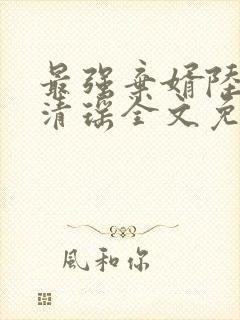 最强弃婿陸
清瑶全文免
風和你